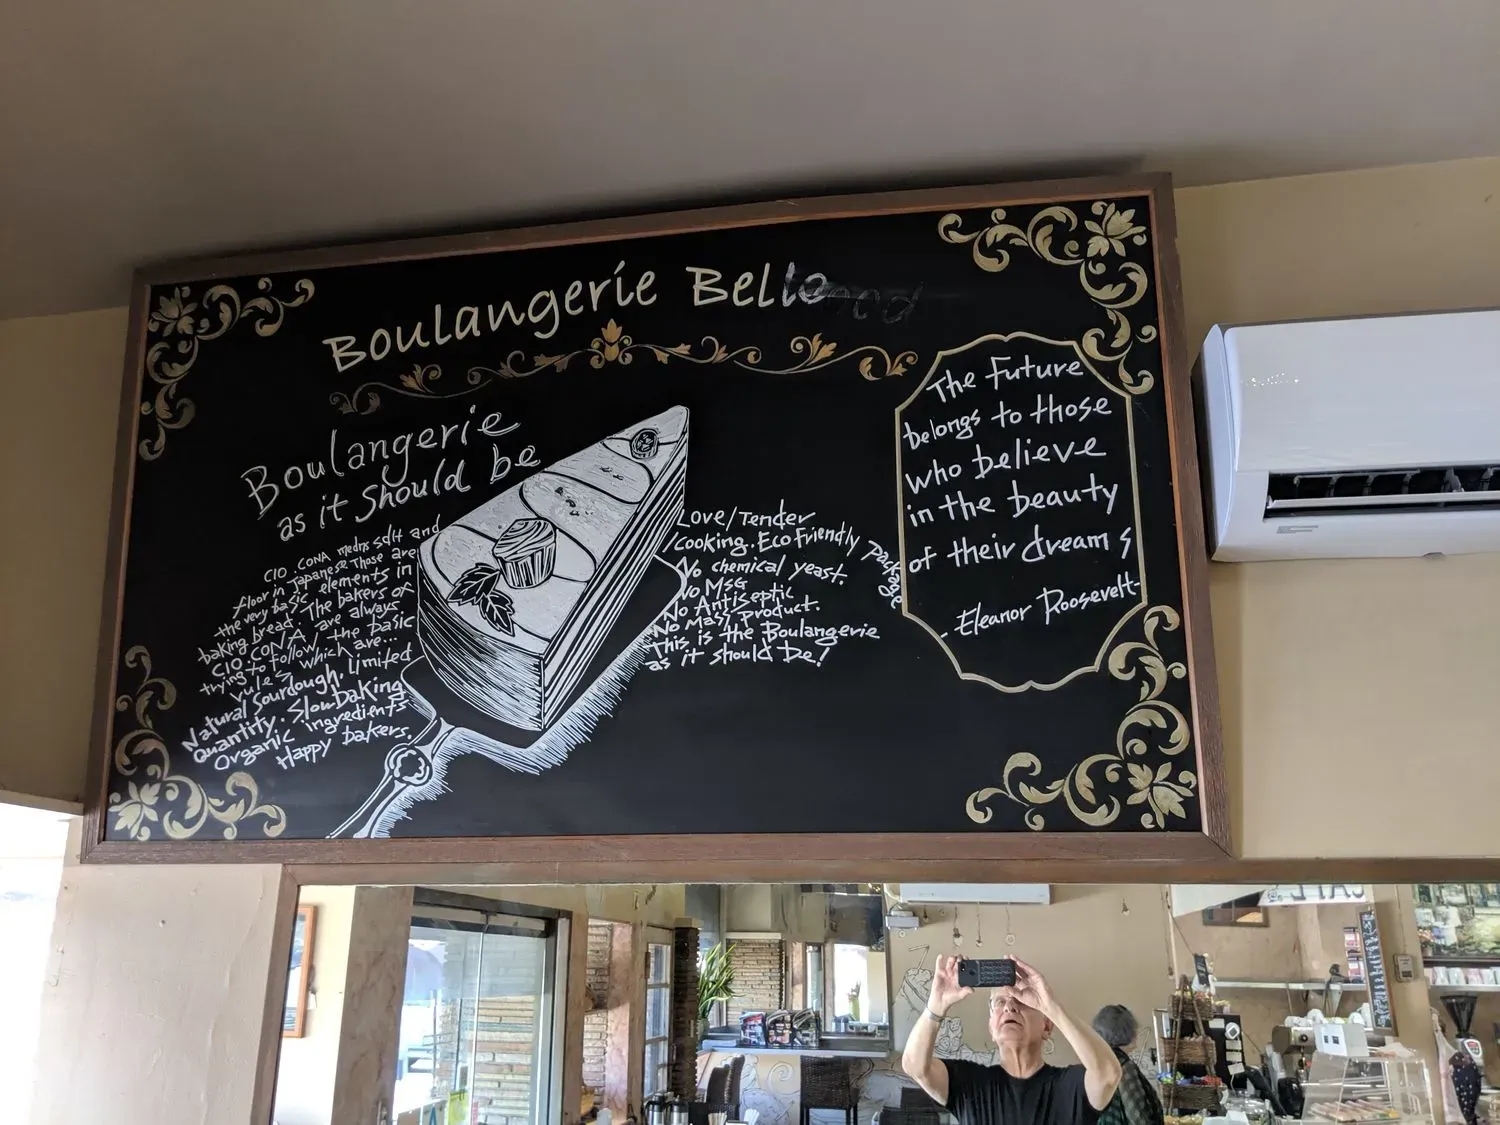 Boulangerie Bello
Boulangerie
as it should be
CIO, CONA means salt and
floor in Japanese. Those are
the very basic elements in
baking bread. The bakers of
CIO CONA/ are always
trying to follow the basic
rules which are...
Natural Sourdough. Limited
Quantity. Slow baking
Organic ingredients
Happy bakers.
Love/Tender
/cooking. Eco Friendly Package
No chemical yeast.
No MSG
No Antiseptic
No Mass product.
This is the Boulangerie
as it should be!
The Future
belongs to those
who believe
in the beauty
of their dreams
- Eleanor Roosevelt-